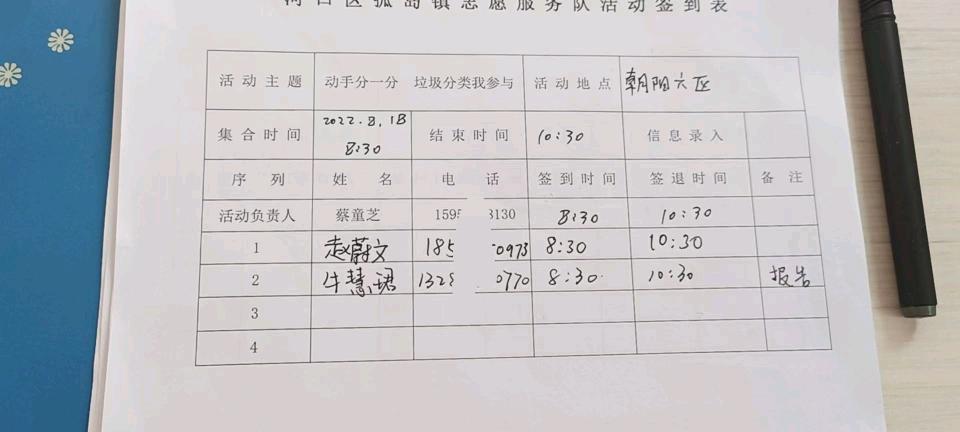 河口区孤岛镇志愿服务队活动签到表
活动主题 动手分一分 垃圾分类我参与 活动地点 朝阳六区
集合时间 2022.8.18 8:30 结束时间 10:30 信息录入
序列 姓名 电话 签到时间 签退时间 备注
活动负责人 蔡童芝 159 3130 8:30 10:30
1 赵蔚文 185 0973 8:30 10:30
2 牛慧珺 132 0770 8:30 10:30 报告
3
4